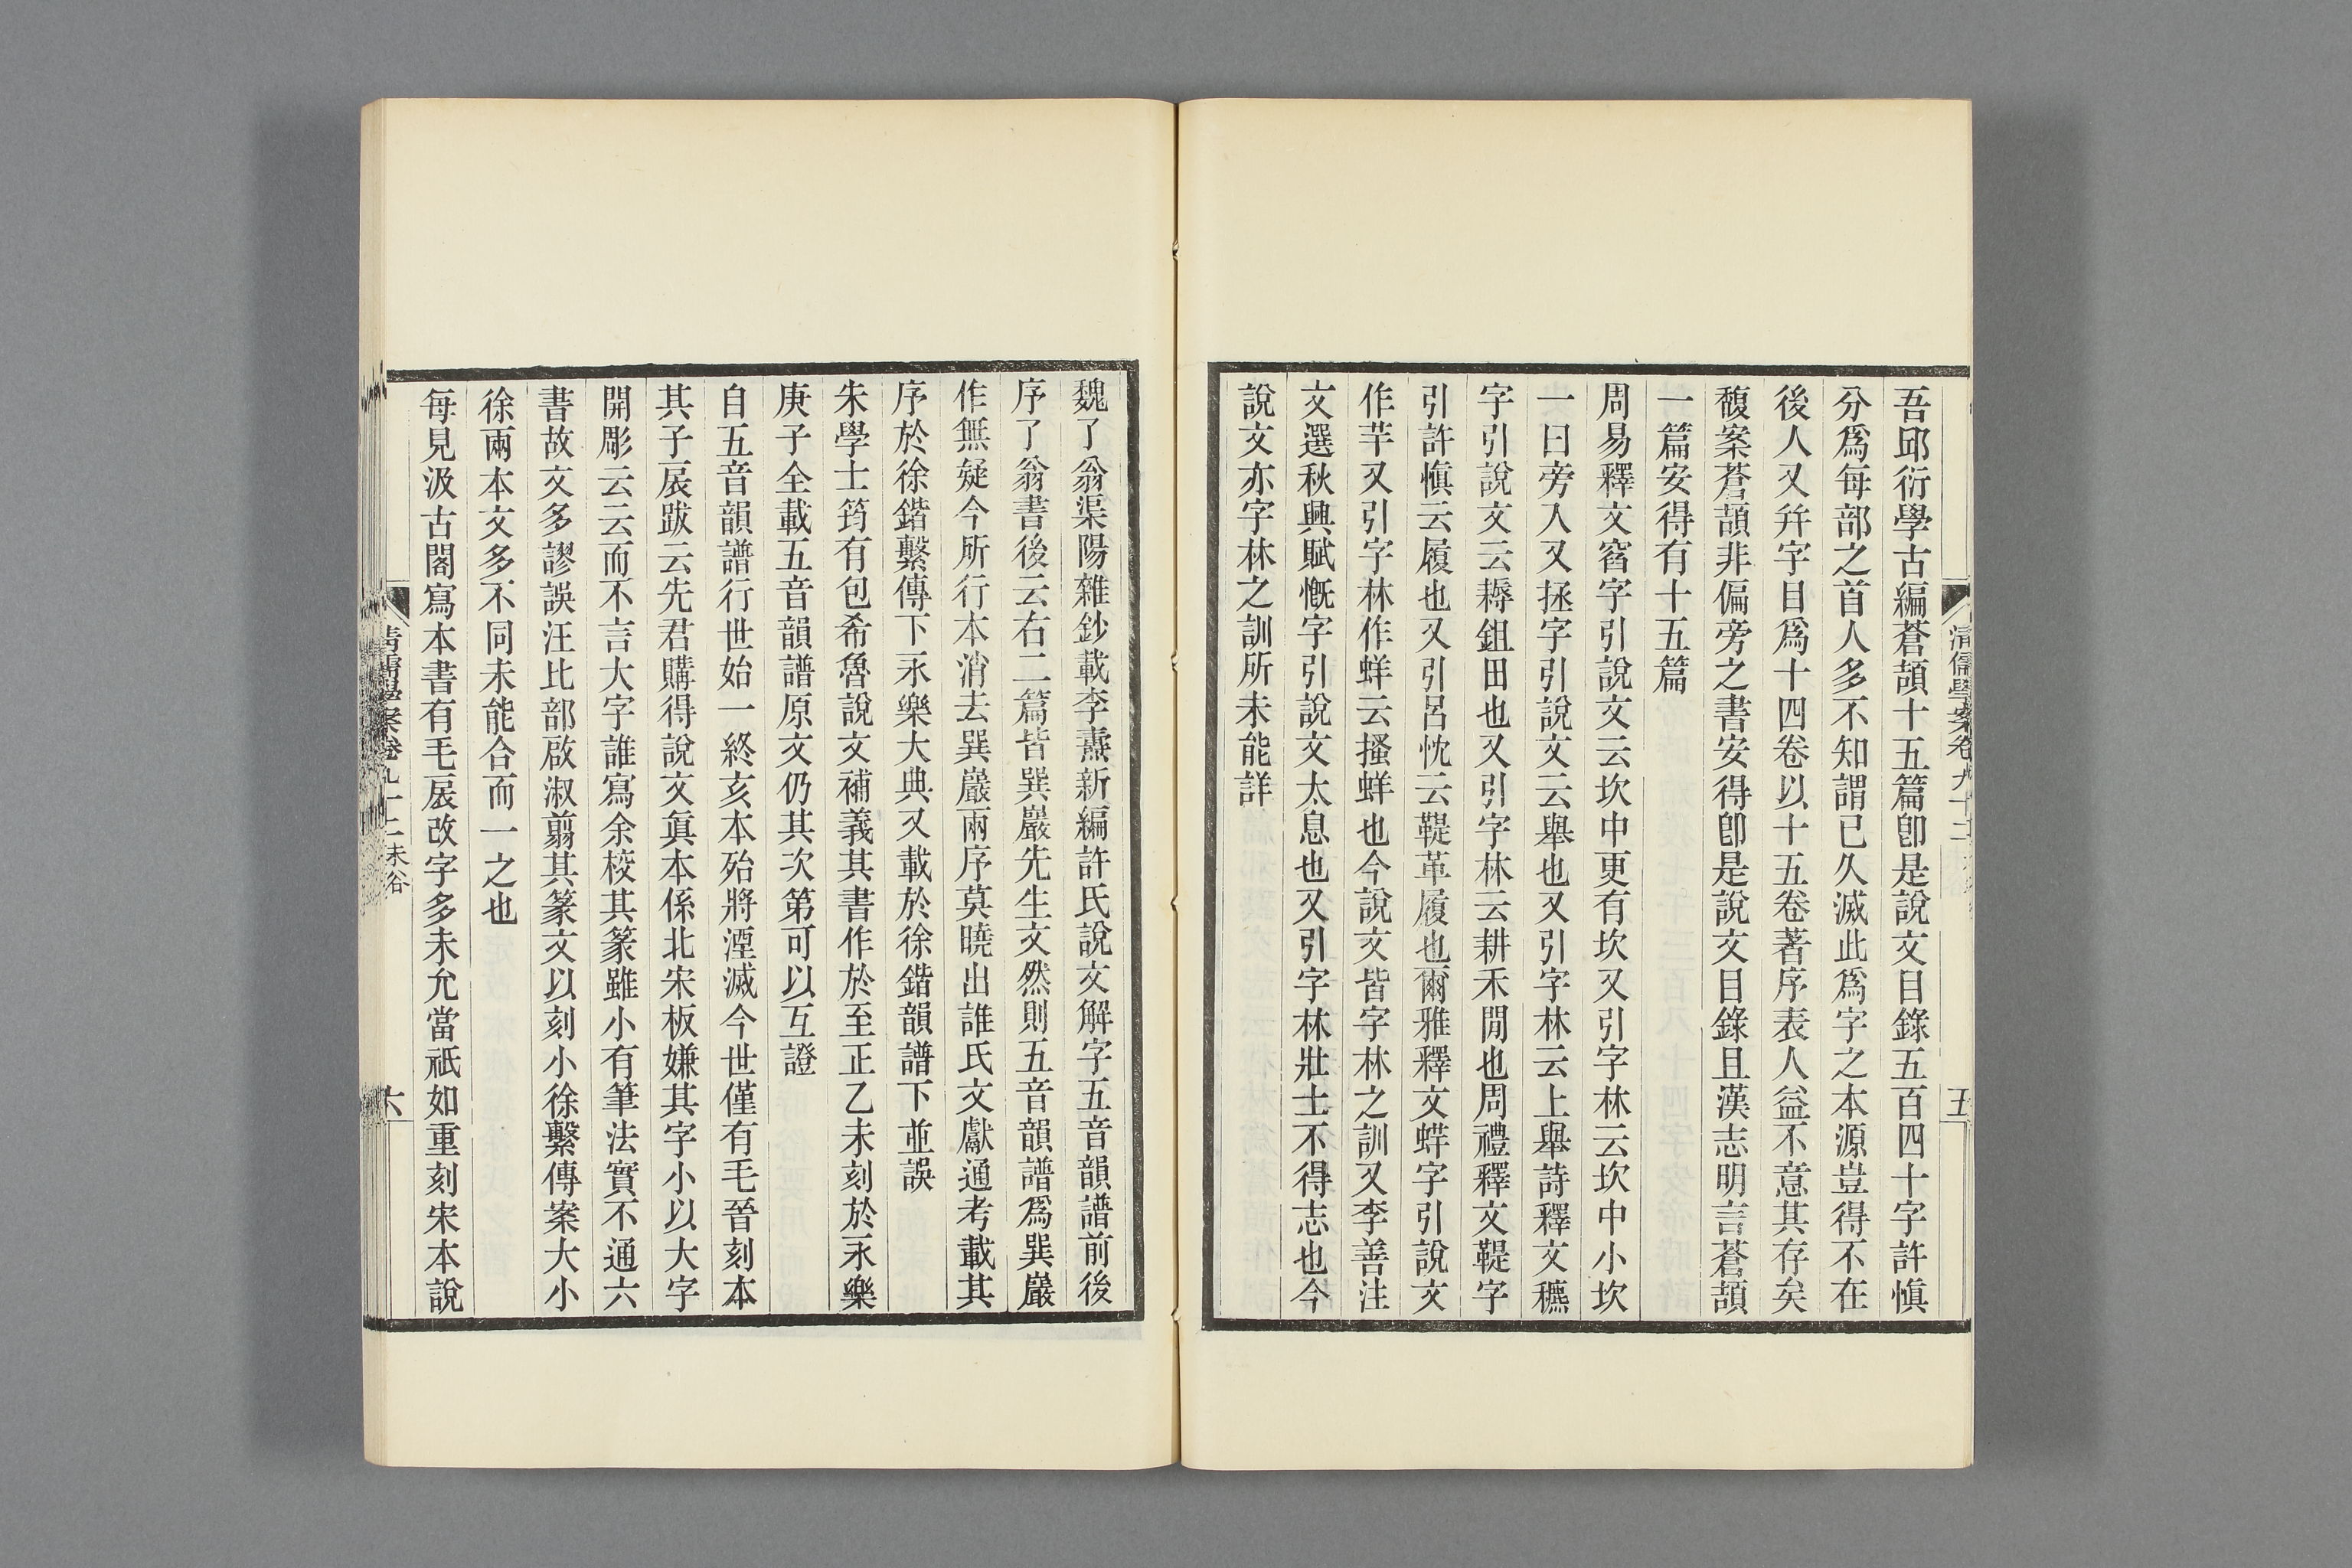 吾邱衍學古編蒼頡十五篇卽是說文目錄五百四十字許愼
分爲每部之首人多不知謂已久滅此爲字之本源豈得不在
後人又幷字目爲十四卷以十五卷著序表人益不意其存矣
馥案蒼頡非偏旁之書安得卽是說文目錄且漢志明言蒼頡
一篇安得有十五篇
周易釋文窞字引說文云坎中更有坎又引字林云坎中小坎
一曰旁入又拯字引說文云舉也又引字林云上舉詩釋文穮
字引說文云耨鉏田也又引字林云耕禾閒也周禮釋文鞮字
引許愼云履也又引呂忱云鞮革履也爾雅釋文蛘字引說文
作芊又引字林作蛘云搔蛘也今說文皆字林之訓又李善注
文選秋興賦慨字引說文太息也又引字林壯士不得志也今
說文亦字林之訓所未能詳
清儒學案卷九十二
五
魏了翁渠陽雜鈔載李燾新編許氏說文解字五音韻譜前後
序了翁書後云右二篇皆巽巖先生文然則五音韻譜爲巽巖
作無疑今所行本消去巽巖兩序莫曉出誰氏文獻通考載其
序於徐鍇繫傳下永樂大典又載於徐鍇韻譜下並誤
朱學士筠有包希魯說文補義其書作於至正乙未刻於永樂
庚子全載五音韻譜原文仍其次第可以互證
自五音韻譜行世始一終亥本殆將湮滅今世僅有毛晉刻本
其子扆跋云先君購得說文眞本係北宋板嫌其字小以大字
開彫云云而不言大字誰寫余校其篆雖小有筆法實不通六
書故文多謬誤汪比部啟淑翦其篆文以刻小徐繫傳案大小
徐兩本文多不同未能合而一之也
每見汲古閣寫本書有毛扆改字多未允當祇如重刻宋本說
清儒學案卷九十二 未谷
六